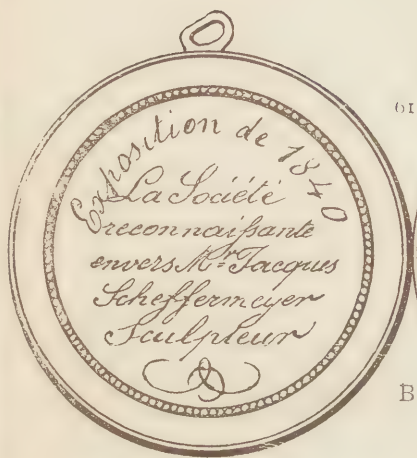 Exposition de 1840
La Société
reconnaiſsante
envers Mr. Jacques
Scheffermeyer
Sculpteur
61
B